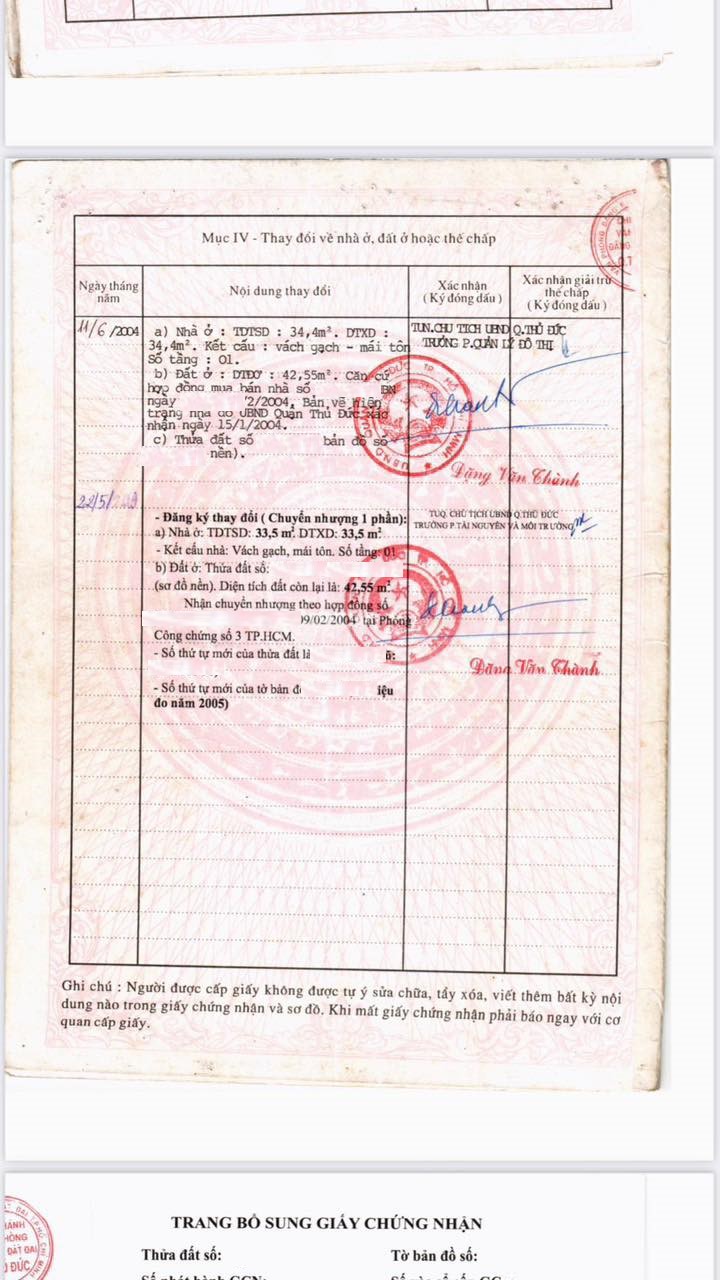 Mục IV - Thay đổi về nhà ở, đất ở hoặc thế chấp
Ngày tháng năm
Nội dung thay đổi
Xác nhận
( Ký đóng dấu )
Xác nhận giải trừ
thế chấp
( Ký đóng dấu )
11/6/2004
a) Nhà ở : TDTSD : 34,4m². DTXD :
34,4m². Kết cấu : vách gạch - mái tôn
Số tầng : 01.
b) Đất ở : DTĐƠ : 42,55m². Căn cứ
hợp đồng mua bán nhà số
ngày '2/2004. Bản vẽ hiện
trạng nhà do UBND Quận Thủ Đức xác
nhận ngày 15/1/2004.
c) Thửa đất số bản đồ số
nền).
TUN.CHỦ TỊCH UBND Q.THỦ ĐỨC
TRƯỞNG P.QUẢN LÝ ĐÔ THỊ
Đặng Văn Thành
22/5/
- Đăng ký thay đổi ( Chuyển nhượng 1 phần):
a) Nhà ở: TDTSD: 33,5 m². DTXD: 33,5 m²
- Kết cấu nhà: Vách gạch, mái tôn. Số tầng: 01
b) Đất ở: Thửa đất số:
(sơ đồ nền). Diện tích đất còn lại là: 42,55 m².
Nhận chuyển nhượng theo hợp đồng số
09/02/2004 tại Phòng
Công chứng số 3 TP.HCM.
- Số thứ tự mới của thửa đất
- Số thứ tự mới của tờ bản
đo năm 2005)
TUQ. CHỦ TỊCH UBND Q.THỦ ĐỨC
TRƯỞNG P.TÀI NGUYÊN VÀ MÔI TRƯỜNG
Đặng Văn Thành
Ghi chú : Người được cấp giấy không được tự ý sửa chữa, tẩy xóa, viết thêm bất kỳ nội
dung nào trong giấy chứng nhận và sơ đồ. Khi mất giấy chứng nhận phải báo ngay với cơ
quan cấp giấy.
TRANG BỔ SUNG GIẤY CHỨNG NHẬN
Thửa đất số:
Tờ bản đồ số: